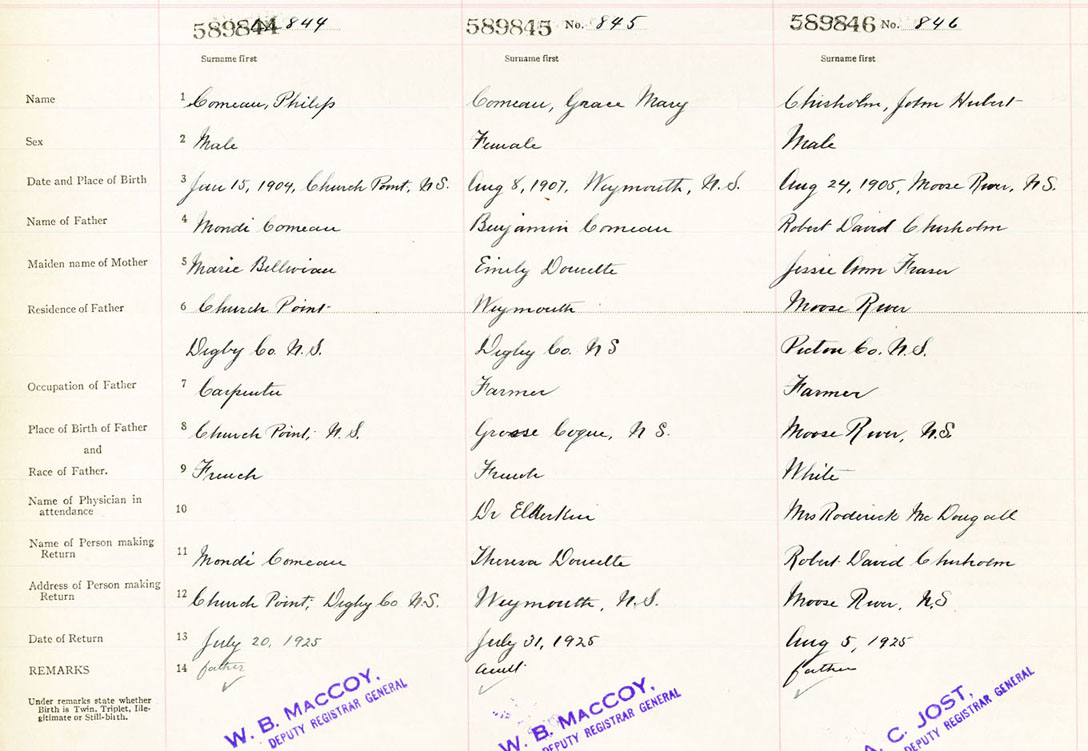 589844 844 589845 No. 845 589846 No. 846
Surname first Surname first Surname first
Name 1 Comeau, Philip Comeau, Grace Mary Chisholm, John Hubert
Sex 2 Male Female Male
Date and Place of Birth 3 15, 1904, Church Point, N.S. Aug 8, 1907, Weymouth, N.S. Aug 24, 1905, Moose River, N.S.
Name of Father 4 Mondi Comeau Benjamin Comeau Robert David Chisholm
Maiden name of Mother 5 Marie Emily Doucette Jessie Ann Fraser
Residence of Father 6 Church Point Weymouth Moose River
Digby Co. N.S. Digby Co. N S Pictou Co. N.S.
Occupation of Father 7 Carpenter Farmer Farmer
Place of Birth of Father 8 Church Point, N.S. Grosse Coque, N S. Moose River, N.S.
and
Race of Father. 9 French French White
Name of Physician in
attendance 10 Dr Elderkin Mrs Roderick McDougall
Name of Person making
Return 11 Mondi Comeau Theresa Doucette Robert David Chisholm
Address of Person making
Return 12 Church Point, Digby Co N.S. Weymouth, N.S. Moose River, N.S
Date of Return 13 July 20, 1925 July 31, 1925 Aug 5, 1925
REMARKS 14 father aunt father
Under remarks state whether
Birth is Twin, Triplet, Ille-
gitimate or Still-birth.
W. B. MACCOY, W. B. MACCOY, A. C. JOST,
DEPUTY REGISTRAR GENERAL DEPUTY REGISTRAR GENERAL DEPUTY REGISTRAR GENERAL